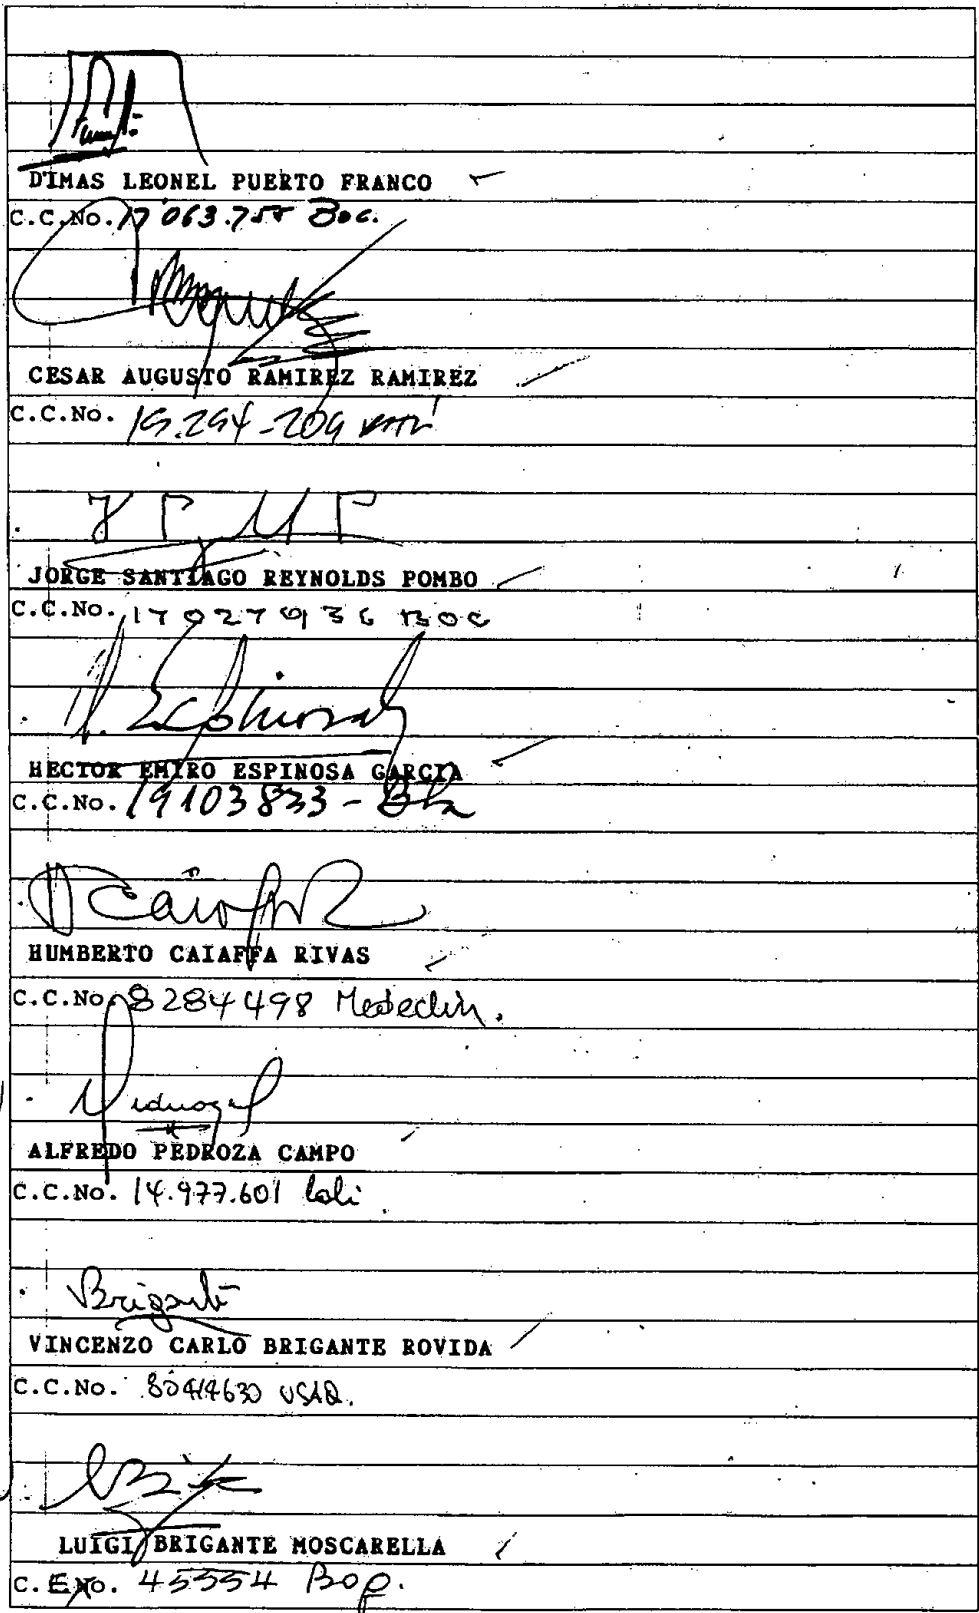 DIMAS LEONEL PUERTO FRANCO
C.C.No. 17'063.755 Boc.
CESAR AUGUSTO RAMIREZ RAMIREZ
C.C.No. 19.294-209
JORGE SANTIAGO REYNOLDS POMBO
C.C.No. 17027936 BOG
H. Espinosa
HECTOR EMIRO ESPINOSA GARCIA
C.C.No. 19103833 - Bta
H Caiaffa R
HUMBERTO CAIAFFA RIVAS
C.C.No. 8284498 Medellin.
ALFREDO PEDROZA CAMPO
C.C.No. 14.977.601 Cali
Brigante
VINCENZO CARLO BRIGANTE ROVIDA
C.C.No. 80414630 USAQ.
LUIGI BRIGANTE MOSCARELLA
C.E.No. 45554 Bog.